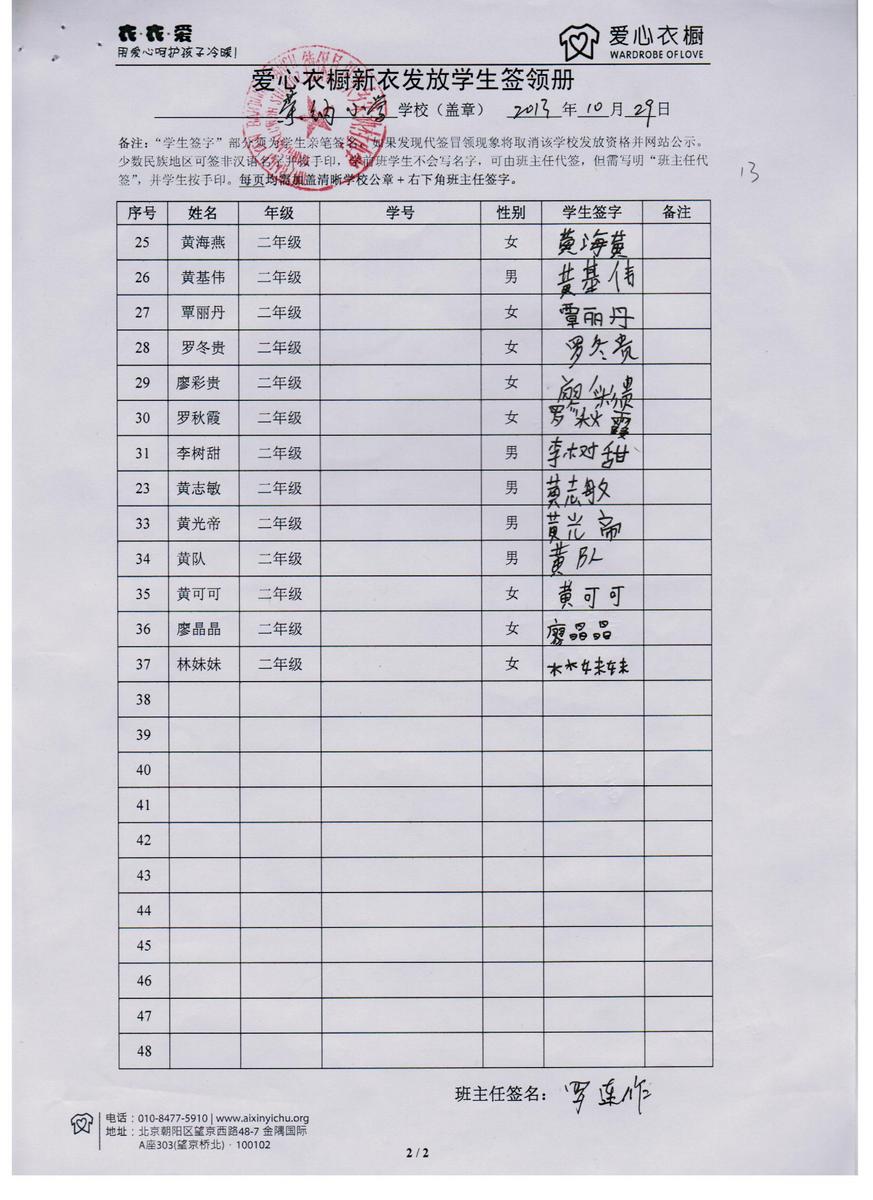 衣·衣·爱
用爱心呵护孩子冷暖!
爱心衣橱
WARDROBE OF LOVE
爱心衣橱新衣发放学生签领册
纳小学 学校（盖章） 2013 年 10 月 29 日
备注：“学生签字”部分须为学生亲笔签名，如果发现代签冒领现象将取消该学校发放资格并网站公示。
少数民族地区可签非汉语名字并按手印，学前班学生不会写名字，可由班主任代签，但需写明“班主任代
签”，并学生按手印。每页均需加盖清晰学校公章+右下角班主任签字。
13
序号 姓名 年级 学号 性别 学生签字 备注
25 黄海燕 二年级 女 黄海黄
26 黄基伟 二年级 男 黄基伟
27 覃丽丹 二年级 女 覃丽丹
28 罗冬贵 二年级 女 罗冬贵
29 廖彩贵 二年级 女
30 罗秋霞 二年级 女 罗秋霞
31 李树甜 二年级 男 李树甜
23 黄志敏 二年级 男 黄志敏
33 黄光帝 二年级 男 黄光帝
34 黄队 二年级 男 黄队
35 黄可可 二年级 女 黄可可
36 廖晶晶 二年级 女 廖晶晶
37 林妹妹 二年级 女 林妹妹
38
39
40
41
42
43
44
45
46
47
48
班主任签名：罗连作
电话：010-8477-5910 | www.aixinyichu.org
地址：北京朝阳区望京西路48-7 金隅国际
A座303(望京桥北) · 100102
2 / 2